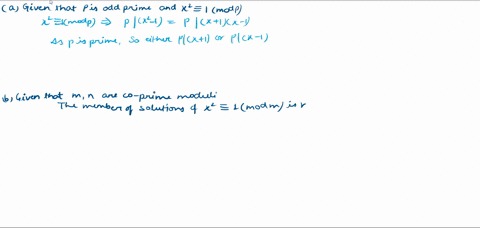 (a) Given that P is odd prime and x² ≡ 1 (mod P)
x² ≡ 1(mod p) ⇒ P | (x²-1) = P | (x+1)(x-1)
As p is prime, So either P|(x+1) or P|(x-1)
b) Given that m, n are co-prime moduli
The member of solutions of x² ≡ 1 (mod m) is r